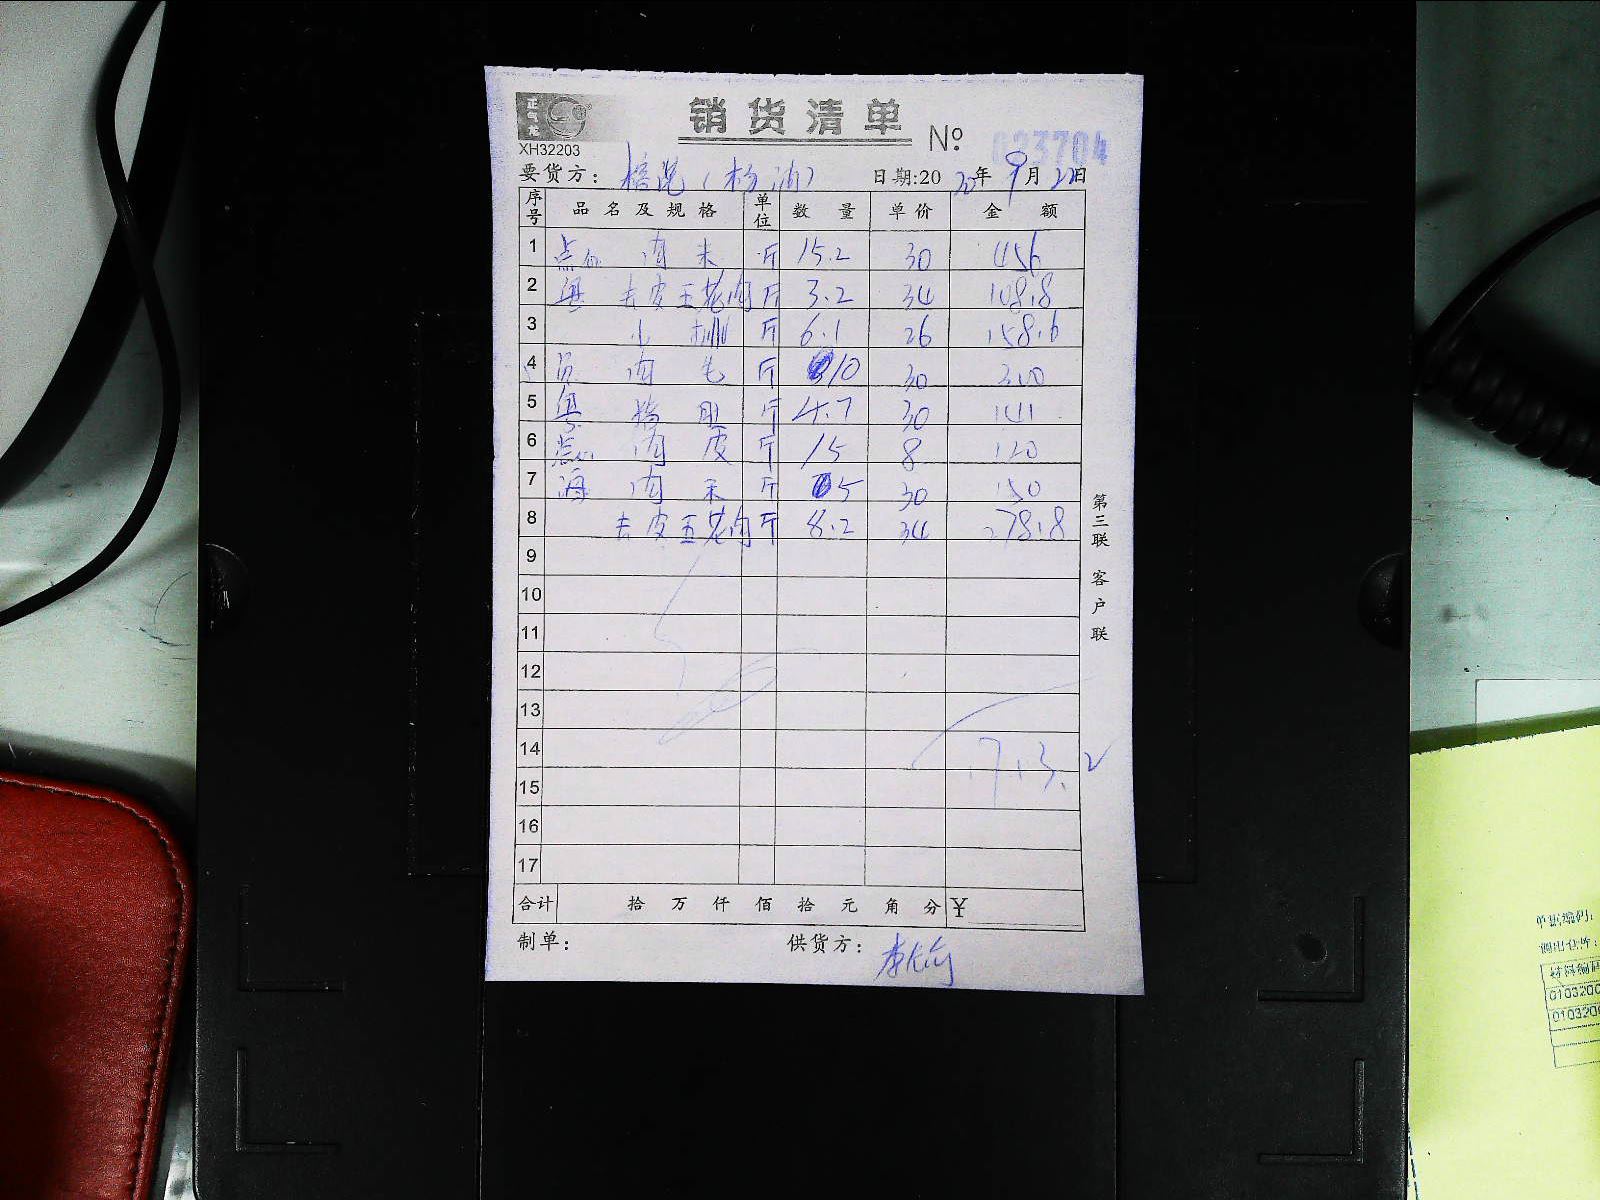 正气龙
销货清单
XH32203
№ 023704
要货方： 日期:20 20 年 9 月 22 日
序号 品名及规格 单位 数量 单价 金额
1 点心 肉末 斤 15.2 30 456
2 粤 去皮五花肉 斤 3.2 34 108.8
3 小排 斤 6.1 26 158.6
4 肉 斤 10 30 300
5 粤 斤 4.7 30 141
6 点心 肉皮 斤 15 8 120
7 海 肉末 斤 5 30 150
8 去皮五花肉 斤 8.2 34 278.8
9
10
11
12
13
14 1713.2
15
16
17
合计 拾 万 仟 佰 拾 元 角 分 ¥
制单： 供货方：
第三联 客户联
单据编码:
调出仓库:
材料编码
0103200
0103200